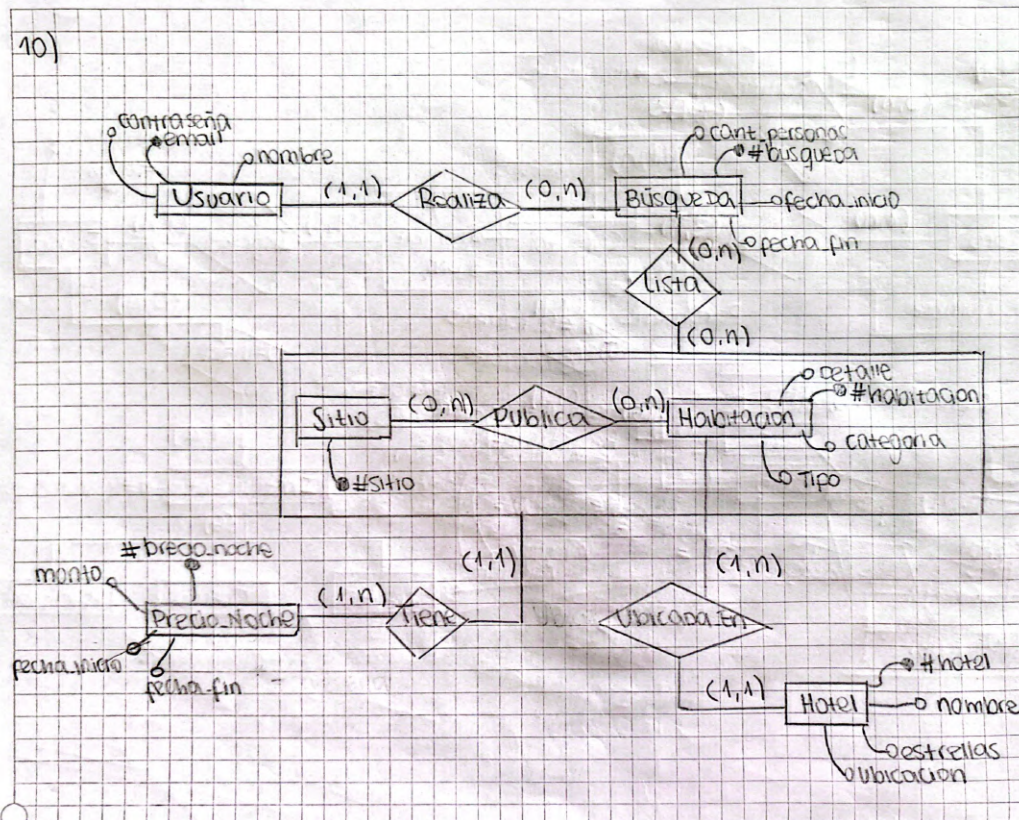 10)
contraseña
email
nombre
Usuario
(1,1)
Realiza
(0,n)
cant_personas
#busqueda
BúsqueDa
fecha_inicio
fecha_fin
(0,n)
Lista
(0,n)
Sitio
(0,n)
Publica
(0,n)
Habitacion
Detalle
#habitacion
categoria
Tipo
#Sitio
#precio_noche
monto
Precio_Noche
(1,n)
Tiene
(1,1)
fecha_inicio
fecha_fin
(1,n)
UbicaDa_En
(1,1)
Hotel
#hotel
nombre
estrellas
ubicacion